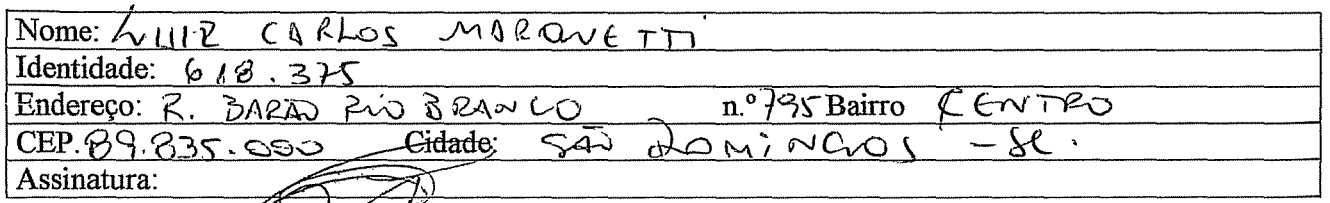 Nome: LUIZ CARLOS MARQUETTI
Identidade: 618.375
Endereço: R. BARÃO RIO BRANCO n.º 795 Bairro CENTRO
CEP. 89.835.000 Cidade: SÃO DOMINGOS - SC.
Assinatura: